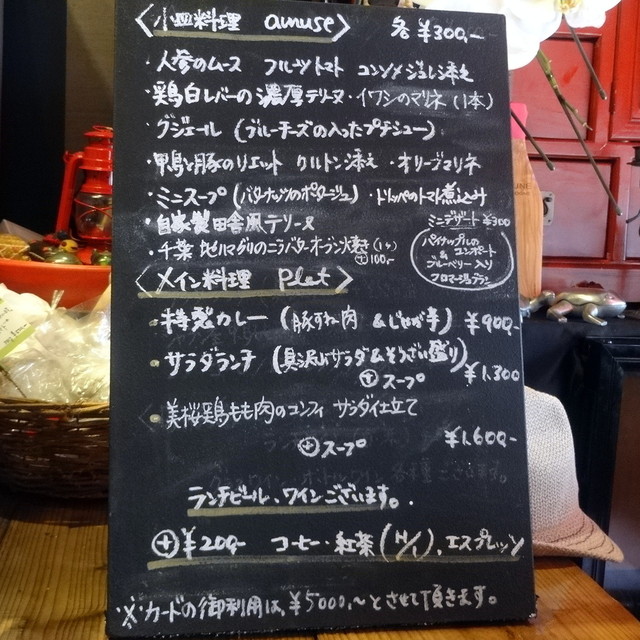 〈小皿料理 amuse〉 各¥300,-
・人参のムース フルーツトマト コンソメジュレ添え
・鶏白レバーの濃厚テリーヌ・イワシのマリネ(1本)
・グジェール(ブルーチーズの入ったプチシュー)
・鴨と豚のリエット クルトン添え ・オリーブマリネ
・ミニスープ(バターナッツのポタージュ) ・トリッパのトマト煮込み
・自家製田舎風テリーヌ
・千葉 地ハマグリのニラバターオーブン焼き(1ヶ)
⊕100,-
ミニデザート ¥300
パイナップルの
コンポート
&
ブルーベリー入り
フロマージュブラン
〈メイン料理 Plat〉
・特製カレー(豚すね肉 &じゃが芋) ¥900,-
・サラダランチ(具沢山サラダ&そうざい盛り)
⊕スープ ¥1,300
・美桜鶏もも肉のコンフィ サラダ仕立て
⊕スープ ¥1,600-
ランチビール、ワインございます。
⊕¥200,- コーヒー・紅茶(H/I)、エスプレッソ
※カードの御利用は、¥5000,〜とさせて頂きます。